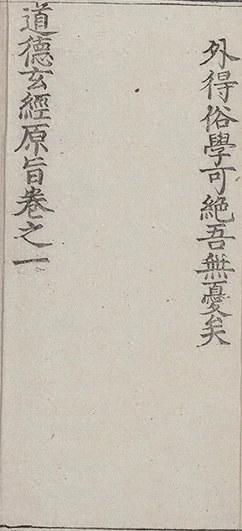 外得俗學可絕吾無憂矣
道德玄經原旨卷之一